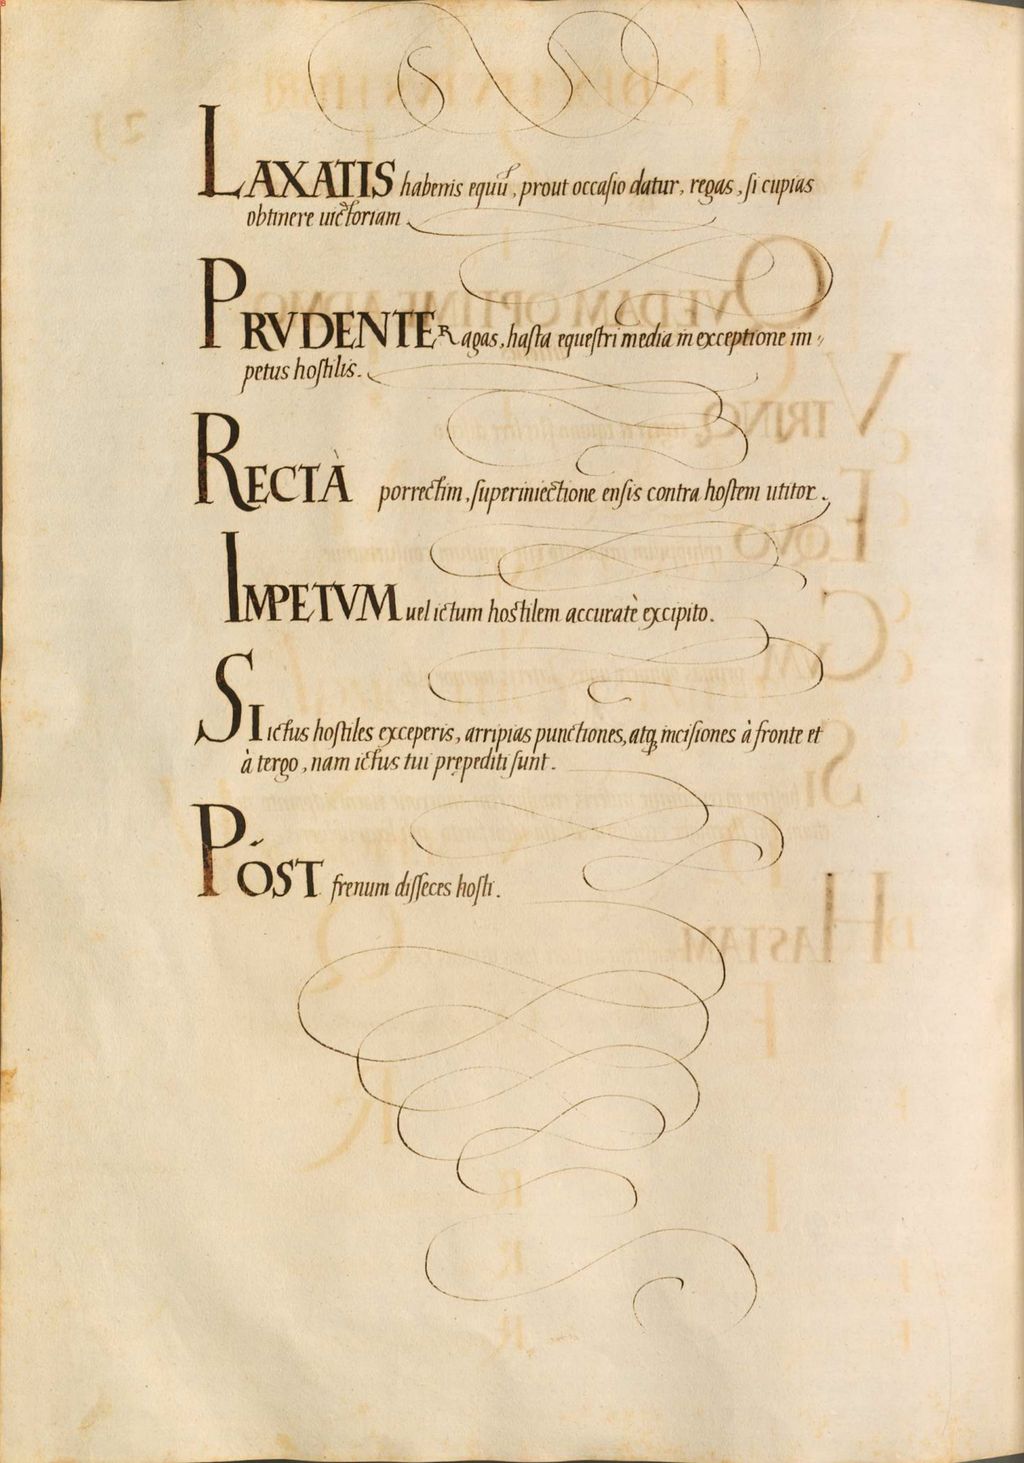 LAXATIS habenis equũ, prout occasio datur, regas, si cupias
obtinere uictoriam.
PRVDENTER agas, hasta equestri media in exceptione im⸗
petus hostilis.
RECTÀ porrectim, superiniectione ensis contra hostem utitor.
IMPETVM uel ictum hostilem accuratè excipito.
SI ictus hostiles exceperis, arripias punctiones, atq; incisiones à fronte et
à tergo, nam ictus tui prępediti sunt.
PÓST frenum disseces hosti.